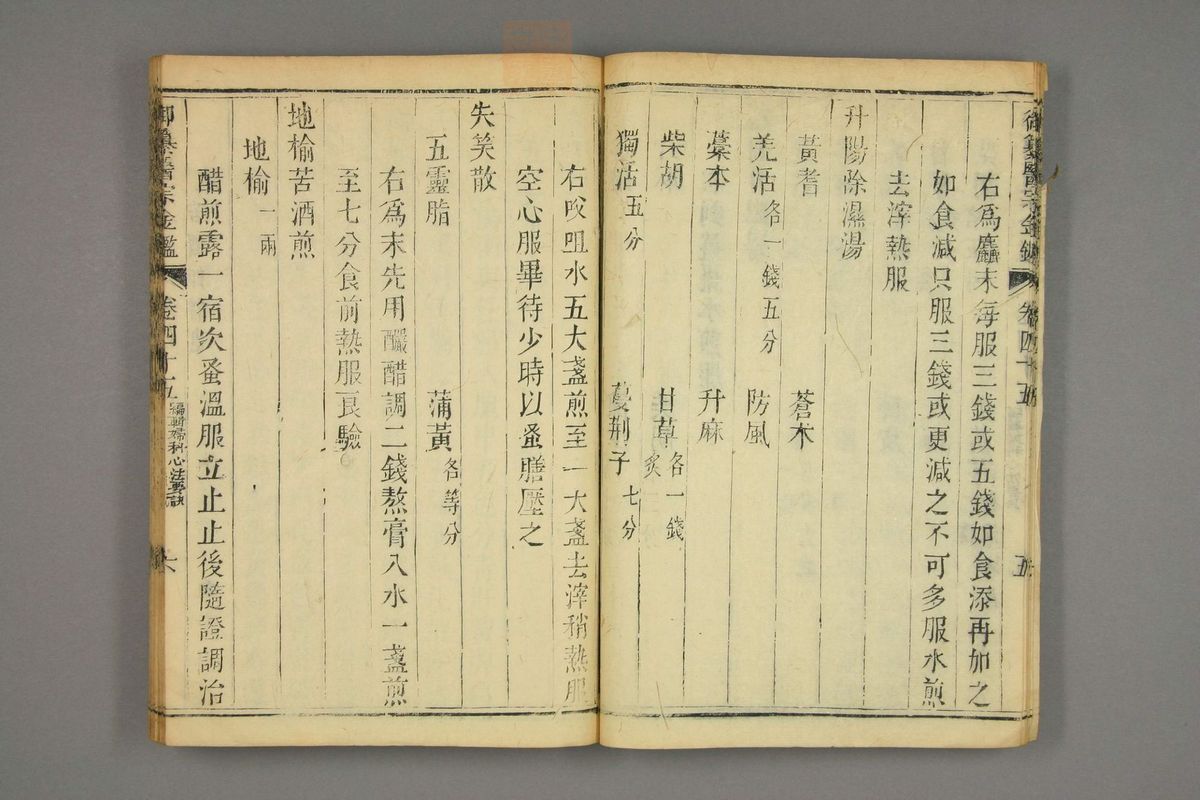 御纂醫宗金鑑 卷四十五 五
右為麤末每服三錢或五錢如食添再加之
如食減只服三錢或更減之不可多服水煎
去滓熱服
升陽除濕湯
黃耆 蒼朮
羌活各一錢五分 防風
藁本 升麻
柴胡 甘草炙各一錢
獨活五分 蔓荆子七分
右㕮咀水五大盞煎至一大盞去滓稍熱服
空心服畢待少時以蚤膳壓之
失笑散
五靈脂 蒲黃各等分
右爲末先用釅醋調二錢熬膏入水一盞煎
至七分食前熱服良驗
地榆苦酒煎
地榆一兩
醋煎露一宿次蚤溫服立止止後隨證調治
御纂醫宗金鑑 卷四十五 編輯婦科心法要訣 六